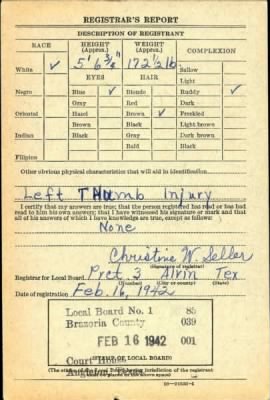 REGISTRAR'S REPORT
DESCRIPTION OF REGISTRANT
RACE HEIGHT (Approx.) WEIGHT (Approx.) COMPLEXION
White ✓ 5' 6 3/4" 172 1/2 lb Sallow
EYES HAIR Light
Negro Blue ✓ Blonde Ruddy ✓
Gray Red Dark
Oriental Hazel Brown ✓ Freckled
Brown Black Light brown
Indian Black Gray Dark brown
Bald Black
Filipino
Other obvious physical characteristics that will aid in identification
Left Thumb Injury
I certify that my answers are true; that the person registered has read or has had
read to him his own answers; that I have witnessed his signature or mark and that
all of his answers of which I have knowledge are true, except as follows:
None
Christine W. Seller
(Signature of registrar)
Registrar for Local Board Prct. 3 Alvin Tex
Date of registration Feb. 16, 1942
Local Board No. 1 85
Brazoria County 039
FEB 16 1942 001
Court House
(STAMP OF LOCAL BOARD)